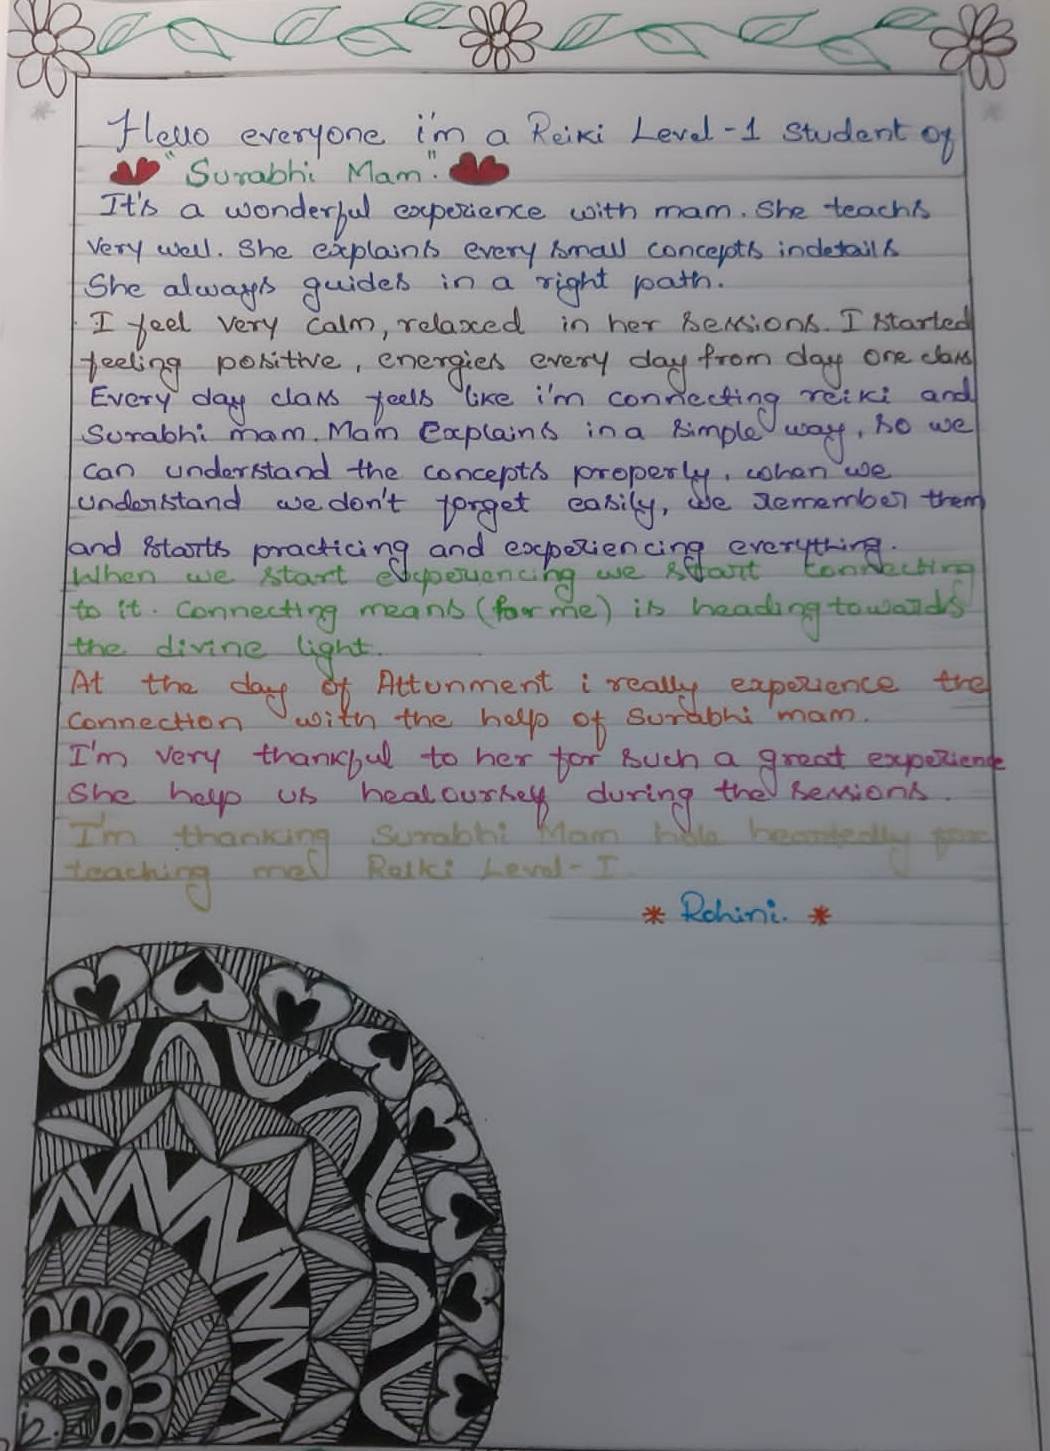 Hello everyone i'm a Reiki Level-1 Student of
"Surabhi Mam".
It's a wonderful experience with mam. She teachs
very well. She explains every small concepts indetails
She always guides in a right path.
I feel very calm, relaxed in her sessions. I started
feeling positive, energies every day from day one class
Every day class feels like i'm connecting reiki and
Surabhi mam. Mam Explains in a simple way, so we
can understand the concepts properly, when we
understand we don't forget easily, we remember them
and starts practicing and experiencing everything.
When we start experiencing we start connecting
to it. Connecting means (for me) is heading towards
the divine light.
At the day of Attunment i really experience the
connection with the help of Surabhi mam.
I'm very thankful to her for such a great experience
She help us heal ourself during the sessions.
I'm thanking Surabhi Mam hole heartedly for
teaching me Reiki Level-I
* Rohini. *